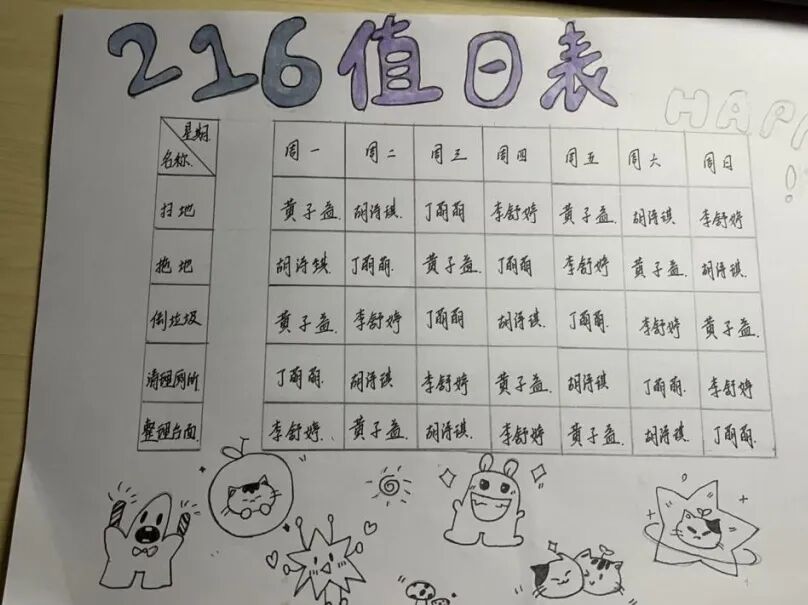 216值日表
HAPP
!
星期
名称 周一 周二 周三 周四 周五 周六 周日
扫地 黄子益. 胡诗琪. 丁丽丽 李舒婷 黄子益. 胡诗琪 李舒婷
拖地 胡诗琪 丁丽丽. 黄子益. 丁丽丽 李舒婷 黄子益 胡诗琪.
倒垃圾 黄子益. 李舒婷 丁丽丽 胡诗琪. 丁丽丽. 李舒婷 黄子益
清理厕所 丁丽丽. 胡诗琪 李舒婷 黄子益. 胡诗琪 丁丽丽. 李舒婷
整理台面. 李舒婷. 黄子益 胡诗琪. 李舒婷 黄子益. 胡诗琪 丁丽丽.